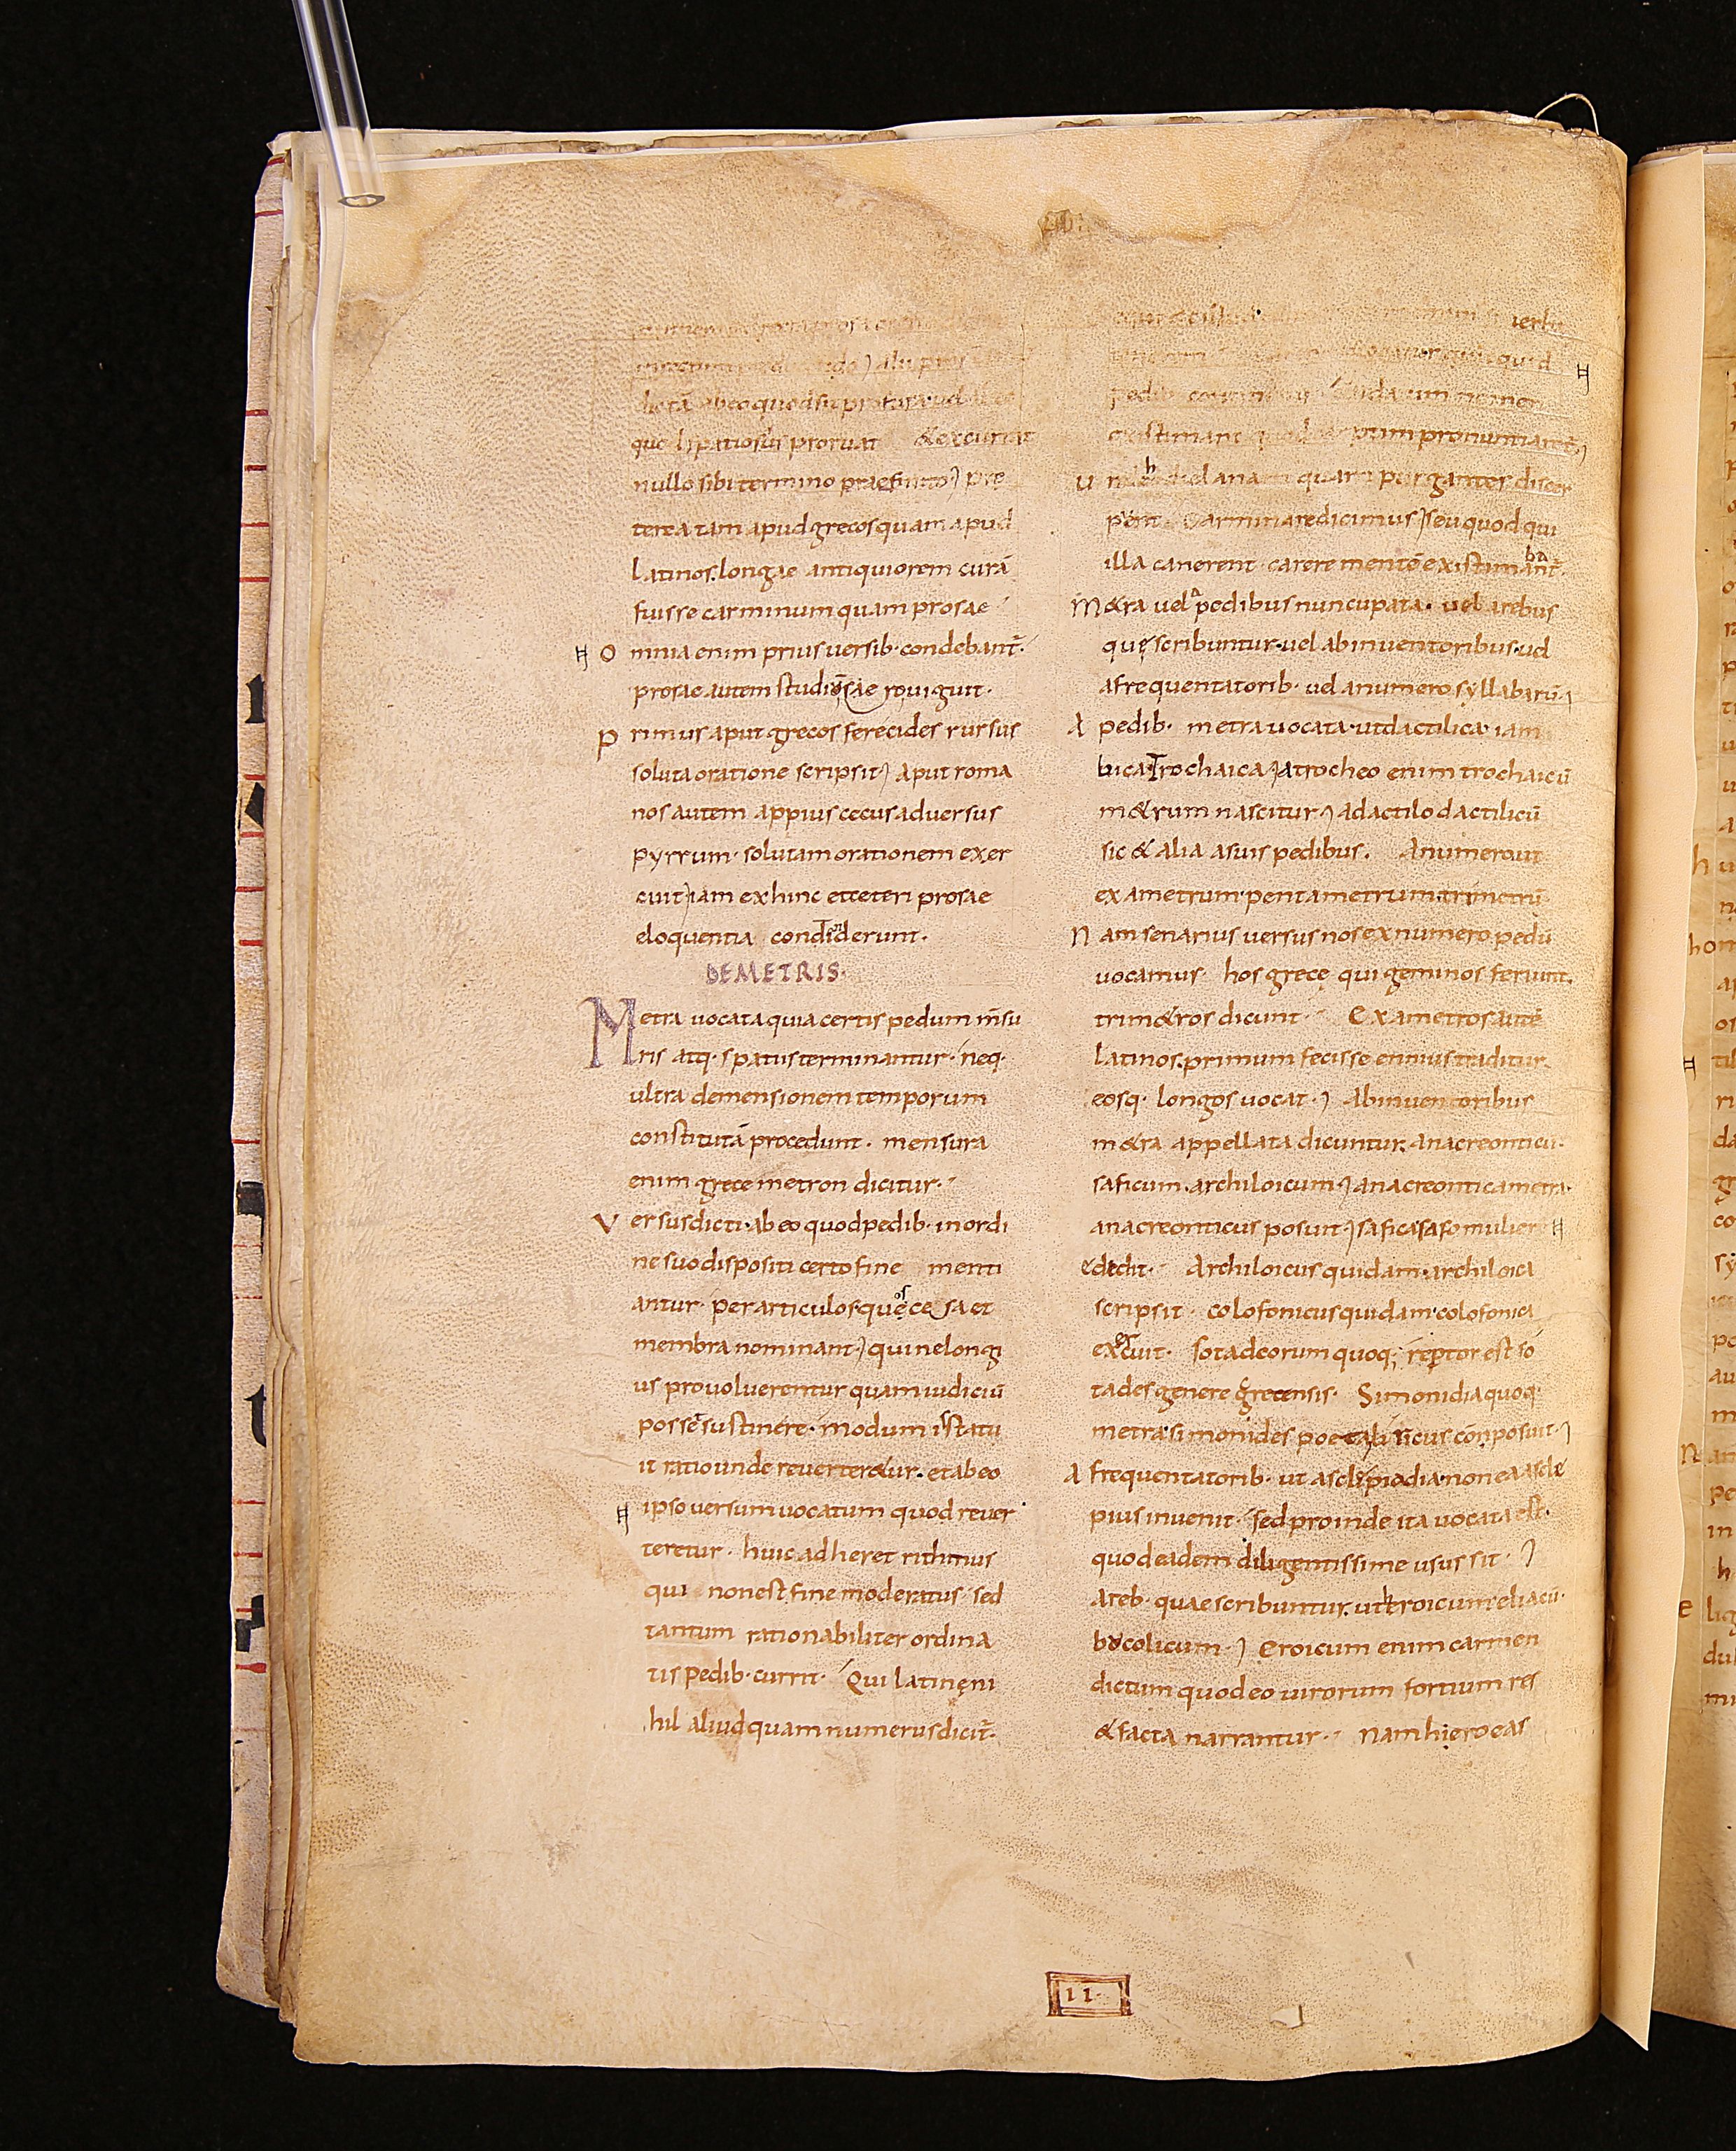 alii pros
dictā ab eo quod sit profusa vel
que spatiosius proruat & excurrat
nullo sibi termino praefinito pre
terea tam apud grecos quam apud
latinos longae antiquiorem curā
fuisse carminum quam prosae
Omnia enim prius versib· condebant̄·
prosae autem studiū sae roviguit·
Primus aput grecos ferecides rursus
soluta oratione scripsit aput roma
nos autem appius cecus adversus
pyrrum· solutam orationem exer
cuit iam exhinc et ceteri prosae
eloquentia condiderunt·
DE METRIS·
Metra vocata quia certis pedum m̄su
ris atq· spatiis terminantur· neq·
ultra demensionem temporum
constitutā procedunt· mensura
enim grece metron dicitur·
Versus dicti· ab eo quod pedib· in ordi
ne suo dispositi certo fine menti
antur· per articulos quę cęsa et
membra nominant qui ne longi
us provolverentur quam iudiciū
posset sustinere· modum istatu
it ratio unde reverter&ur· et ab eo
ipso versum vocatum quod rever
teretur· huic adheret rithmus
qui non est fine moderatus· sed
tantum rationabiliter ordina
tis pedib· currit· Qui latinę ni
hil aliud quam numerus dicit̄·
verbu
pedib continetur
existimant ptim pronuntiaret
unde h& lanam quam purgantes discer
pent Carminare dicimus seu quod qui
illa canerent· carere mentē existimabant̄·
M&ra vel a pedibus nuncupata· vel a rebus
quę scribuntur· vel ab inventoribus· vel
a frequentatorib· vel a numero syllabarū·
A pedib· metra vocata· ut dactilica· iam
bica Trochaica a trocheo enim trochaicū
m&rum nascitur a dactilo dactilicū
sic & alia a suis pedibus· A numero ut
exametrum· pentametrum· trimetrū·
Nam senarius versus nos ex numero pedū
vocamus· hos grecę qui geminos feriunt·
trim&ros dicunt· Exametros autē
latinos primum fecisse ennius traditur·
eosq· longos vocat· Ab inventoribus
m&ra appellata dicuntur· anacreonticū·
saficum· archiloicum anacreontica metra·
anacreonticus posuit safica safo mulier
edidit· Archiloicus quidam· archiloica
scripsit· colofonicus quidam· colofonica
exercuit· Sotadeorum quoq; reptor est so
tades genere grecensis· Simonidia quoq·
metra simonides poeta liricus conposuit·
A frequentatorib· ut asclepiadia· non ea ascle
pius invenit· sed proinde ita vocata est·
quod eadem diligentissime usus sit·
A reb· quae scribuntur· ut heroicum· eliacū·
bucolicum· Eroicum enim carmen
dictum quod eo virorum fortium res
& facta narrantur· Nam hieroeas
11